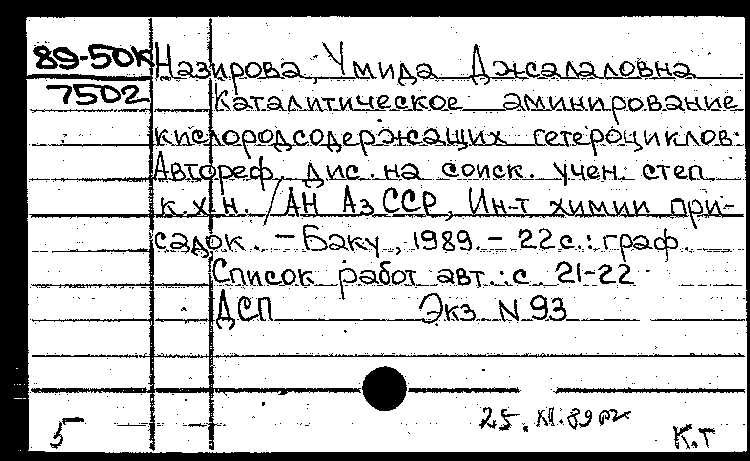 89-50к Назирова, Умида Джалаловна
7502 Каталитическое аминирование
кислородсодержащих гетероциклов:
Автореф. дис. на соиск. учен. степ.
к.х.н. / АН АзССР, Ин-т химии при-
садок. - Баку, 1989. - 22 с.: граф.
Список работ авт.: с. 21-22
ДСП Экз. N 93
25.XI.89
5 К.Т